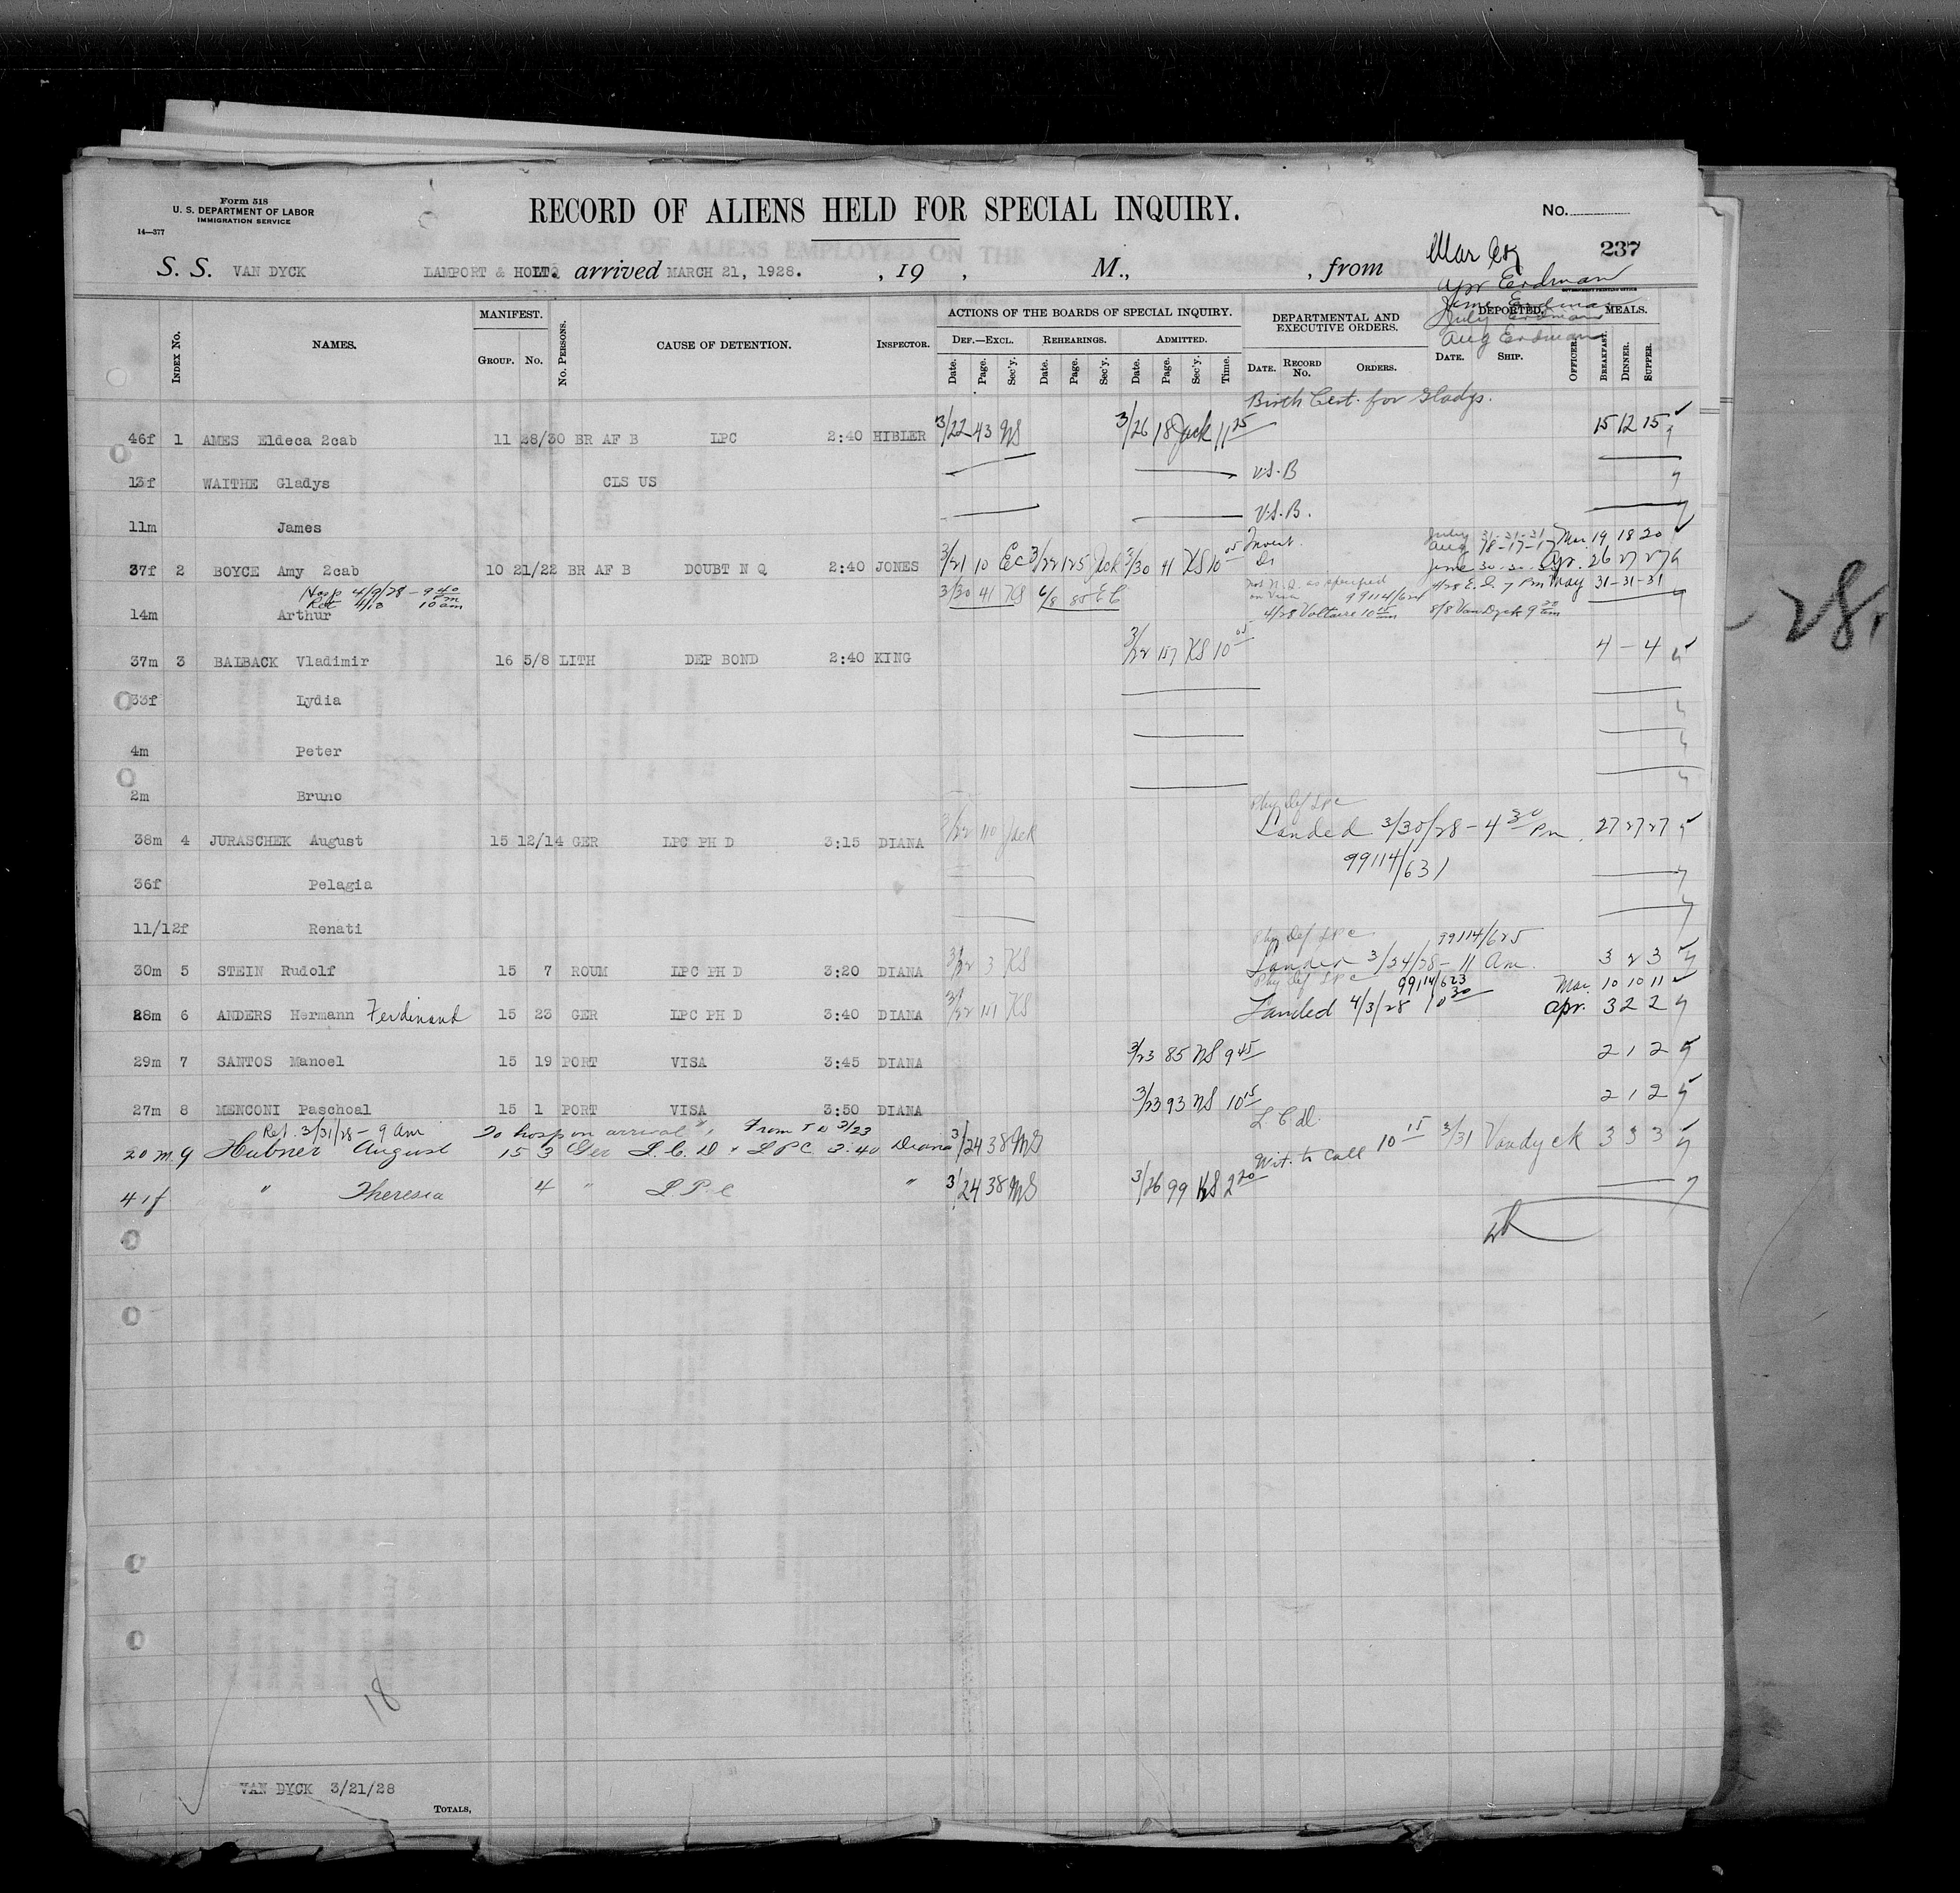 Form 518
U. S. DEPARTMENT OF LABOR
IMMIGRATION SERVICE
14—377
RECORD OF ALIENS HELD FOR SPECIAL INQUIRY.
No.
237
S. S. VAN DYCK LAMPORT & HOLT. arrived MARCH 21, 1928. , 19 , M., , from
Mar
Apr Erdman
June Erdman
July Erdman
Aug Erdman
INDEX No.
NAMES.
MANIFEST.
GROUP. No.
No. PERSONS.
CAUSE OF DETENTION.
INSPECTOR.
ACTIONS OF THE BOARDS OF SPECIAL INQUIRY.
DEF.—EXCL. REHEARINGS. ADMITTED.
Date. Page. Sec'y. Date. Page. Sec'y. Date. Page. Sec'y. Time.
DEPARTMENTAL AND EXECUTIVE ORDERS.
DATE. RECORD No. ORDERS.
DEPORTED.
DATE. SHIP. OFFICER.
MEALS.
BREAKFAST. DINNER. SUPPER.
Birth Cert. for Gladys.
46f 1 AMES Eldeca 2cab 11 28/30 BR AF B LPC 2:40 HIBLER 3/22 43 NS 3/26 18 Jack 11 25 15 12 15
13f WAITHE Gladys CLS US U.S.B
11m James U.S.B.
July 31-21-21 Mar. 19 18 20
Aug 18-17-17
37f 2 BOYCE Amy 2cab 10 21/22 BR AF B DOUBT N Q 2:40 JONES 3/21 10 EC 3/22 125 Jack 3/30 41 KS 10 05 June 30-30-30 Apr. 26 27 27
Hosp 4/9/28 - 9 40 am
Ret 4/13 10 am
3/30 41 KS 6/8 85 EC Not N.Q. as specified on Visa 99114/624 4/28 E.I. 7 Pm May 31-31-31
14m Arthur 4/28 Voltaire 10 15 am 8/8 Van Dyck 9 30 am
37m 3 BALBACK Vladimir 16 5/8 LITH DEP BOND 2:40 KING 3/22 157 KS 10 05 4 - 4
33f Lydia
4m Peter
2m Bruno
Phy Def LPC
38m 4 JURASCHEK August 15 12/14 GER LPC PH D 3:15 DIANA 3/22 110 Jack Landed 3/30/28 - 4 30 Pm. 27 27 27
99114/631
36f Pelagia
11/12f Renati
Phy Def LPC 99114/625
30m 5 STEIN Rudolf 15 7 ROUM LPC PH D 3:20 DIANA 3/22 3 KS Landed 3/24/28 - 11 Am. 3 2 3
Phy Def LPC 99114/623 Mar. 10 10 11
28m 6 ANDERS Hermann Ferdinand 15 23 GER LPC PH D 3:40 DIANA 3/22 141 KS Landed 4/3/28 10 30 Apr. 3 2 2
29m 7 SANTOS Manoel 15 19 PORT VISA 3:45 DIANA 3/23 85 NS 9 45 2 1 2
27m 8 MENCONI Paschoal 15 1 PORT VISA 3:50 DIANA 3/23 93 NS 10 15 2 1 2
Ret. 3/31/28 - 9 Am To hosp on arrival From 3/23 L C D.
20 m 9 Hubner August 15 3 Ger L.C.D + LPC 3:40 Diana 3/24 38 MS Wit. to Call 10 15 3/31 Vandyck 3 3 3
41f " Theresia 4 " L.P.C " 3/24 38 MS 3/26 99 KS 2 20
18
VAN DYCK 3/21/28
TOTALS,
28